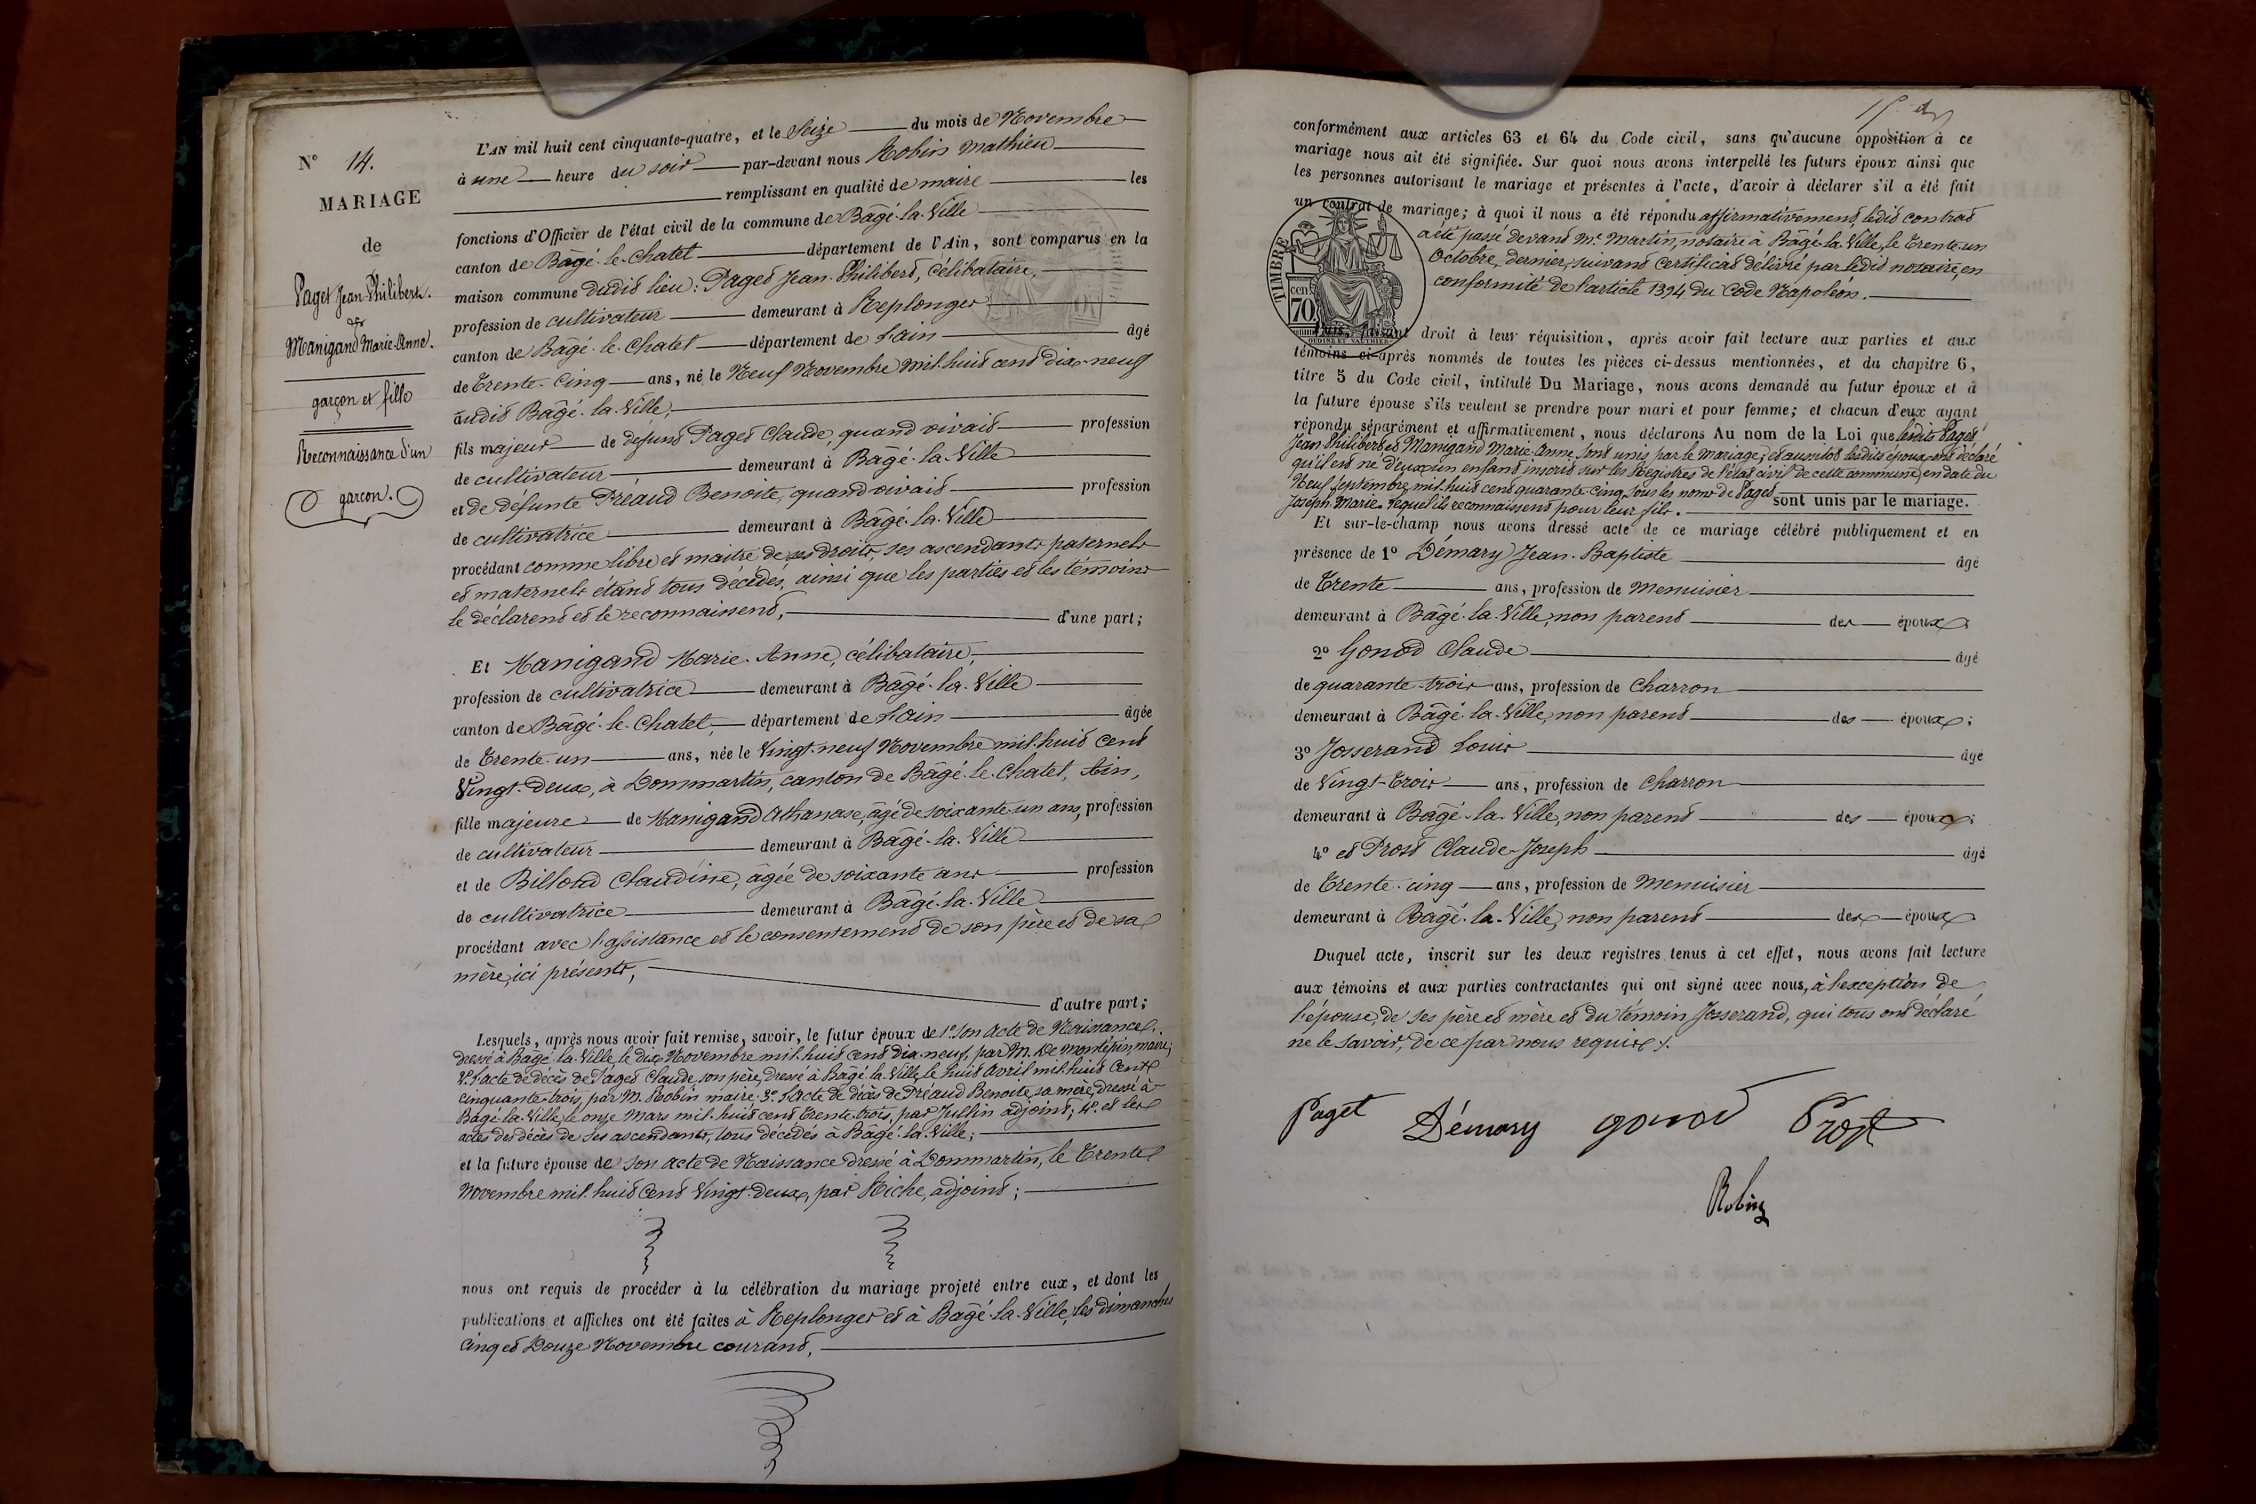 N° 14.
MARIAGE
de
Paget Jean-Philibert.
et
Manigand Marie-Anne.
garçon et fille
Reconnaissance d'un
garçon.
L'AN mil huit cent cinquante-quatre, et le Seize du mois de Novembre
à une heure du soir par-devant nous Robin Mathieu
remplissant en qualité de maire les
fonctions d'Officier de l'état civil de la commune de Bâgé-la-Ville
canton de Bâgé-le-Chatel département de l'Ain, sont comparus en la
maison commune dudit lieu: Paget Jean-Philibert, célibataire,
profession de cultivateur demeurant à Replonges
canton de Bâgé-le-Chatel département de l'ain âgé
de Trente-Cinq ans, né le Neuf Novembre mil huit cent dix-neuf
audit Bâgé-la-Ville,
fils majeur de défunt Paget Claude, quand vivait profession
de cultivateur demeurant à Bâgé-la-Ville
et de défunte Préaud Benoite, quand vivait profession
de cultivatrice demeurant à Bâgé-la-Ville
procédant comme libre et maitre de ses droits, ses ascendants paternels
et maternels étant tous décédés, ainsi que les parties et les témoins
le déclarent et le reconnaissent, d'une part;
Et Manigand Marie-Anne, célibataire,
profession de cultivatrice demeurant à Bâgé-la-Ville
canton de Bâgé-le-Chatel, département de l'ain âgée
de Trente-un ans, née le Vingt-neuf Novembre mil-huit cent
Vingt-deux, à Dommartin, canton de Bâgé-le-Chatel, Ain,
fille majeure de Manigand Athanase, âgé de soixante-un ans, profession
de cultivateur demeurant à Bâgé-la-Ville
et de Billoud Claudine, âgée de soixante ans profession
de cultivatrice demeurant à Bâgé-la-Ville
procédant avec l'assistance et le consentement de son père et de sa
mère, ici présents,
d'autre part;
Lesquels, après nous avoir fait remise, savoir, le futur époux de 1° Son acte de Naissance,
dressé à Bâgé-la-Ville, le dix Novembre mil-huit cent dix-neuf, par M. De Montépin, maire;
2° l'acte de décès de Paget Claude, son père, dressé à Bâgé-la-Ville, le huit avril mil-huit cent
cinquante-trois, par M. Robin maire; 3° l'acte de décès de Préaud Benoite, sa mère, dressé à
Bâgé-la-Ville, le onze Mars mil-huit cent Trente-trois, par Jullin adjoint; 4° et les
actes des décès de ses ascendants, tous décédés à Bâgé-la-Ville;
et la future épouse de son acte de Naissance dressé à Dommartin, le Trente
Novembre mil-huit Cent Vingt-deux, par Riche, adjoint;
nous ont requis de procéder à la célébration du mariage projeté entre eux, et dont les
publications et affiches ont été faites à Replonges et à Bâgé-la-Ville, les dimanches
cinq et Douze Novembre courant,
conformément aux articles 63 et 64 du Code civil, sans qu'aucune opposition à ce
mariage nous ait été signifiée. Sur quoi nous avons interpellé les futurs époux ainsi que
les personnes autorisant le mariage et présentes à l'acte, d'avoir à déclarer s'il a été fait
un contrat de mariage; à quoi il nous a été répondu affirmativement, ledit contrat
a été passé devant Me Martin, notaire à Bâgé-la-Ville, le Trente-un
Octobre, dernier, suivant certificat délivré par ledit notaire, en
conformité de l'article 1394 du Code Napoléon.
TIMBRE
cen
70
OUDINE ET VAUTHIER
Puis, faisant droit à leur réquisition, après avoir fait lecture aux parties et aux
témoins ci-après nommés de toutes les pièces ci-dessus mentionnées, et du chapitre 6,
titre 5 du Code civil, intitulé Du Mariage, nous avons demandé au futur époux et à
la future épouse s'ils veulent se prendre pour mari et pour femme; et chacun d'eux ayant
répondu séparément et affirmativement, nous déclarons Au nom de la Loi que lesdits Paget
Jean-Philibert et Manigand Marie-Anne, sont unis par le mariage; et aussitôt lesdits époux ont déclaré
qu'il est né d'eux un enfant inscrit sur les Registres de l'état civil de cette commune, en date du
Neuf Septembre mil-huit cent quarante-cinq, sous les noms de Paget sont unis par le mariage.
Joseph-Marie, lequel ils reconnaissent pour leur fils.
Et sur-le-champ nous avons dressé acte de ce mariage célébré publiquement et en
présence de 1° Démary Jean-Baptiste âgé
de Trente ans, profession de Menuisier
demeurant à Bâgé-la-Ville, non parent des époux;
2° Gonod Claude âgé
de quarante-trois ans, profession de Charron
demeurant à Bâgé-la-Ville, non parent des époux;
3° Josserand Louis âgé
de Vingt-trois ans, profession de charron
demeurant à Bâgé-la-Ville, non parent des époux;
4° et Prost Claude-Joseph âgé
de Trente-cinq ans, profession de Menuisier
demeurant à Bâgé-la-Ville, non parent des époux
Duquel acte, inscrit sur les deux registres tenus à cet effet, nous avons fait lecture
aux témoins et aux parties contractantes qui ont signé avec nous, à l'exception de
l'épouse, de ses père et mère et du témoin Josserand, qui tous ont déclaré
ne le savoir, de ce par nous requis.
Paget Démary gonod Prost
Robin